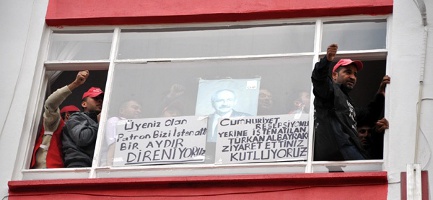 Üyeniz Olan
Patron Bizi İşten attı
Bir Aydır
Direniyoruz
Cumhuriyet
Resepsiyonu
Yerine İşten Atılan
Türkan Albayrak'ı
Ziyaret Ettiniz
Kutluyoruz